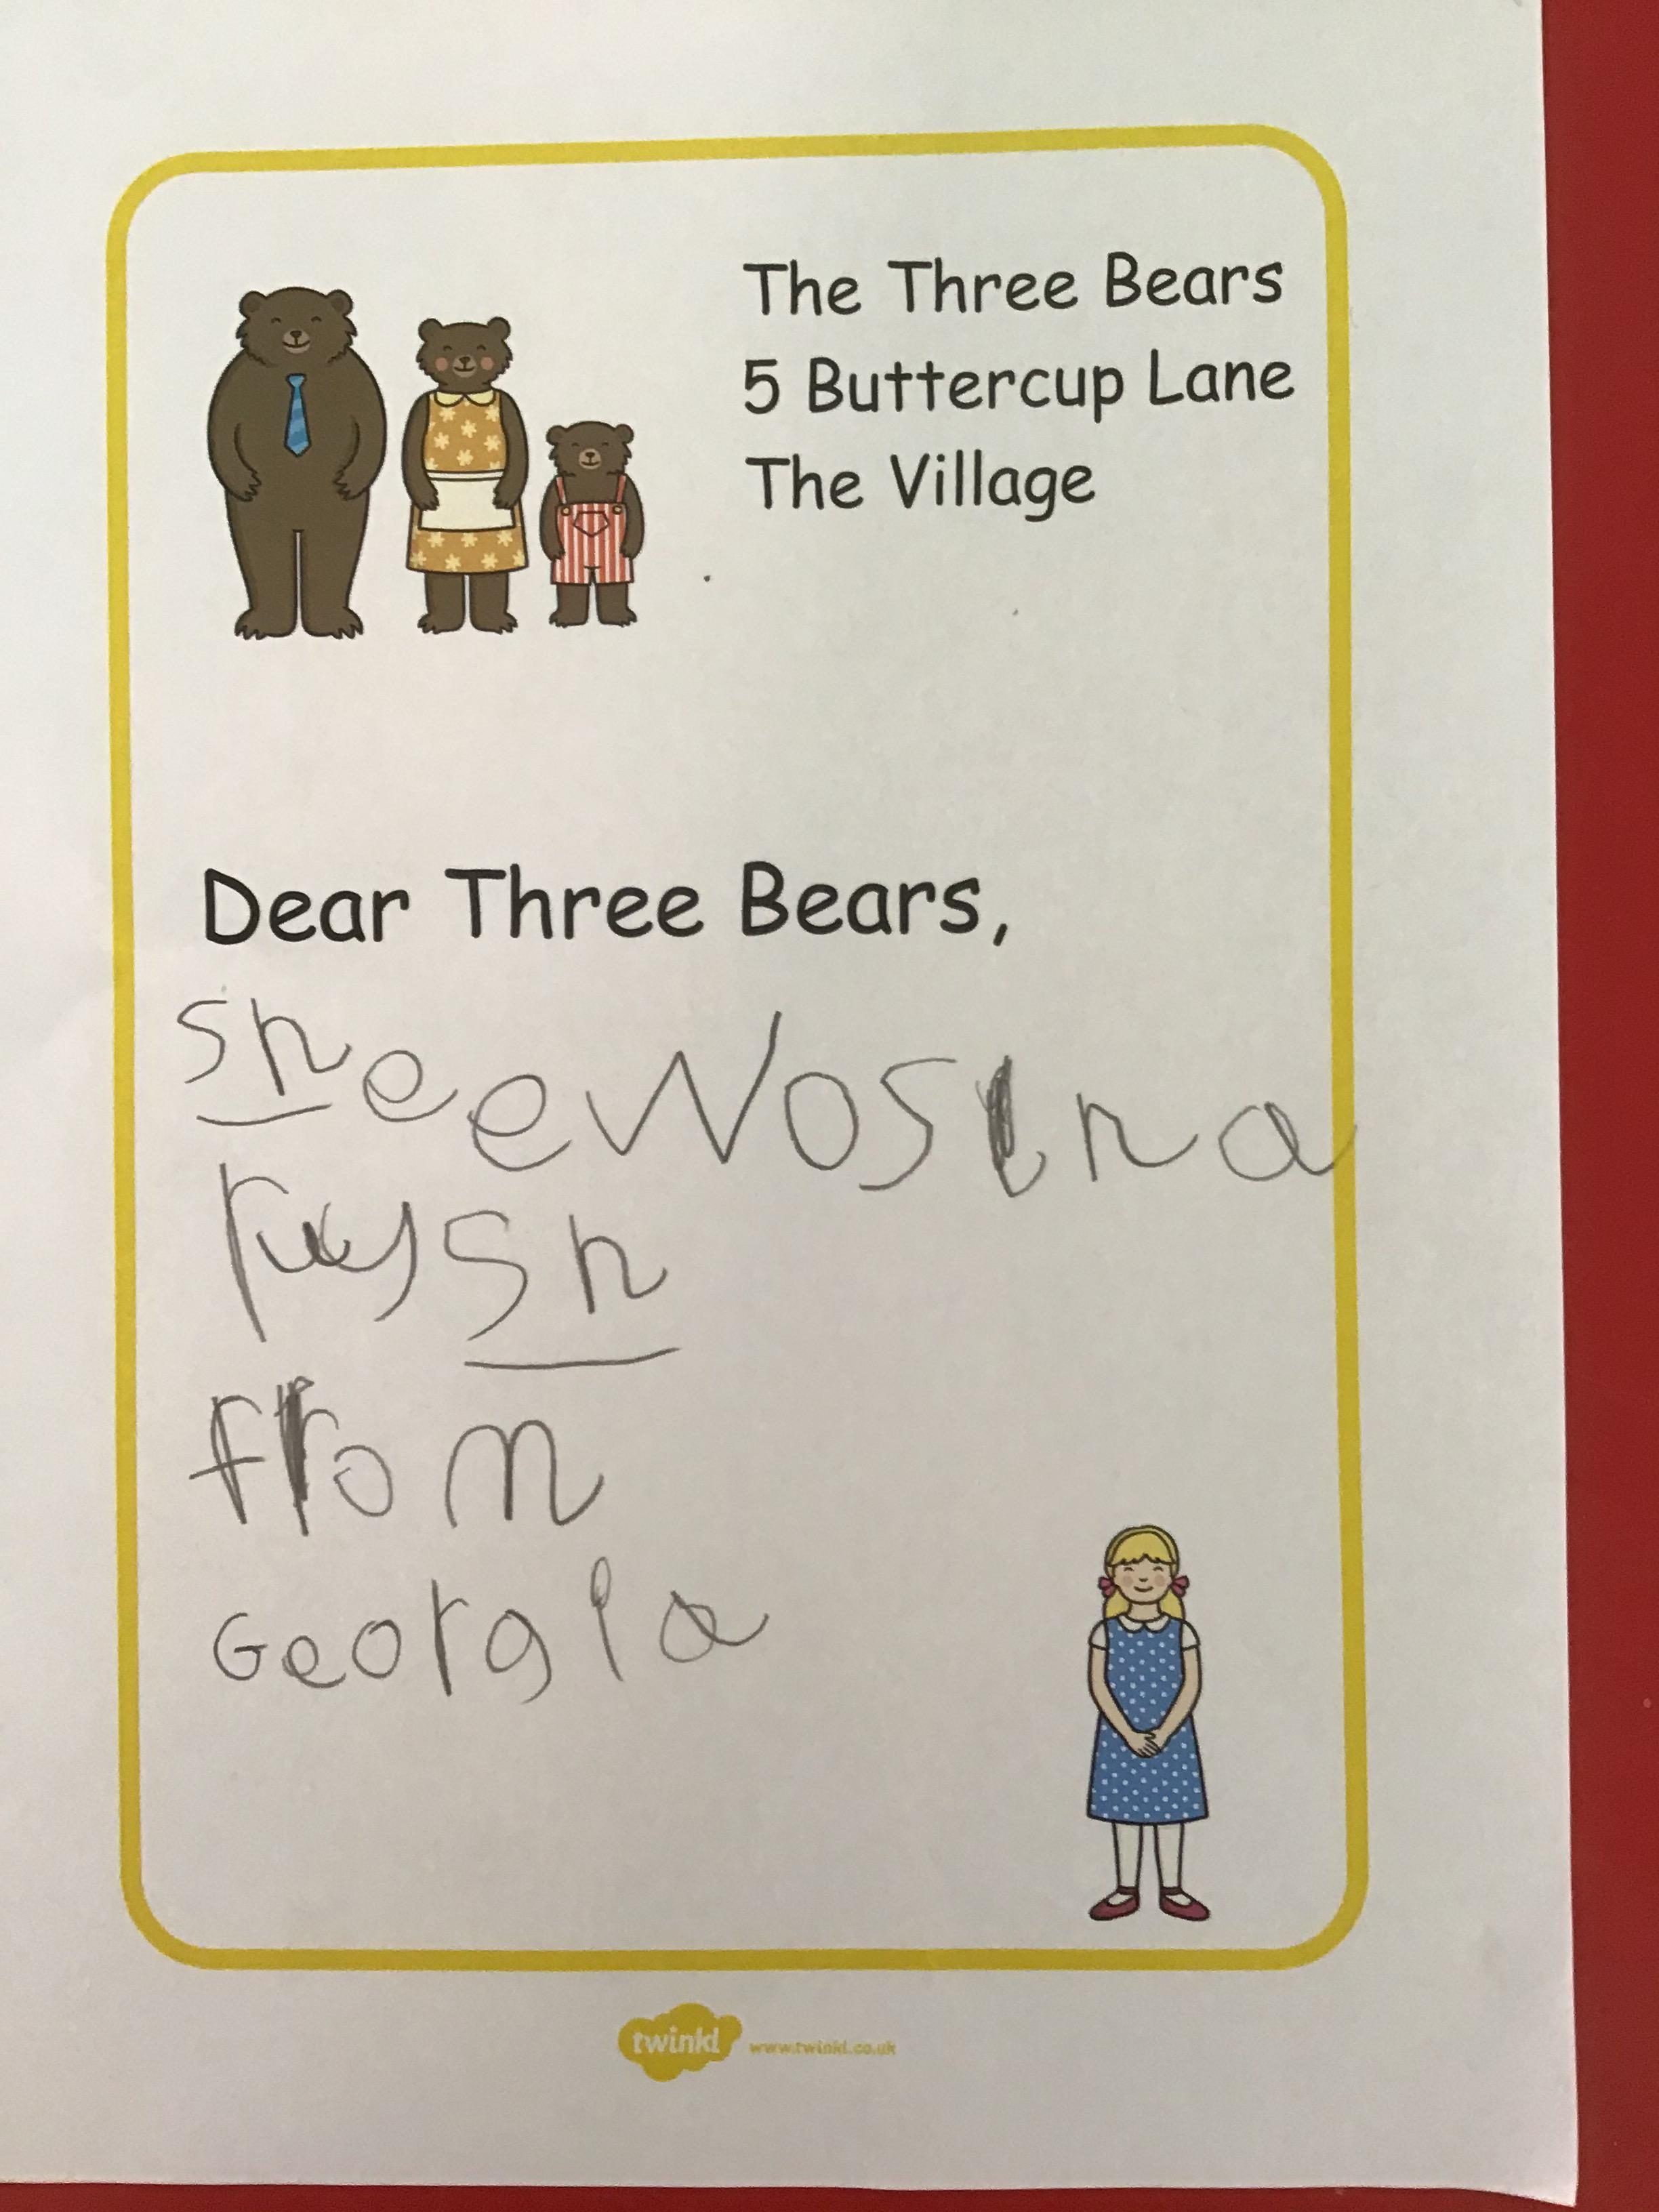 The Three Bears
5 Buttercup Lane
The Village
Dear Three Bears,
sheewosina
russh
from
Georgia
twinkl www.twinkl.co.uk